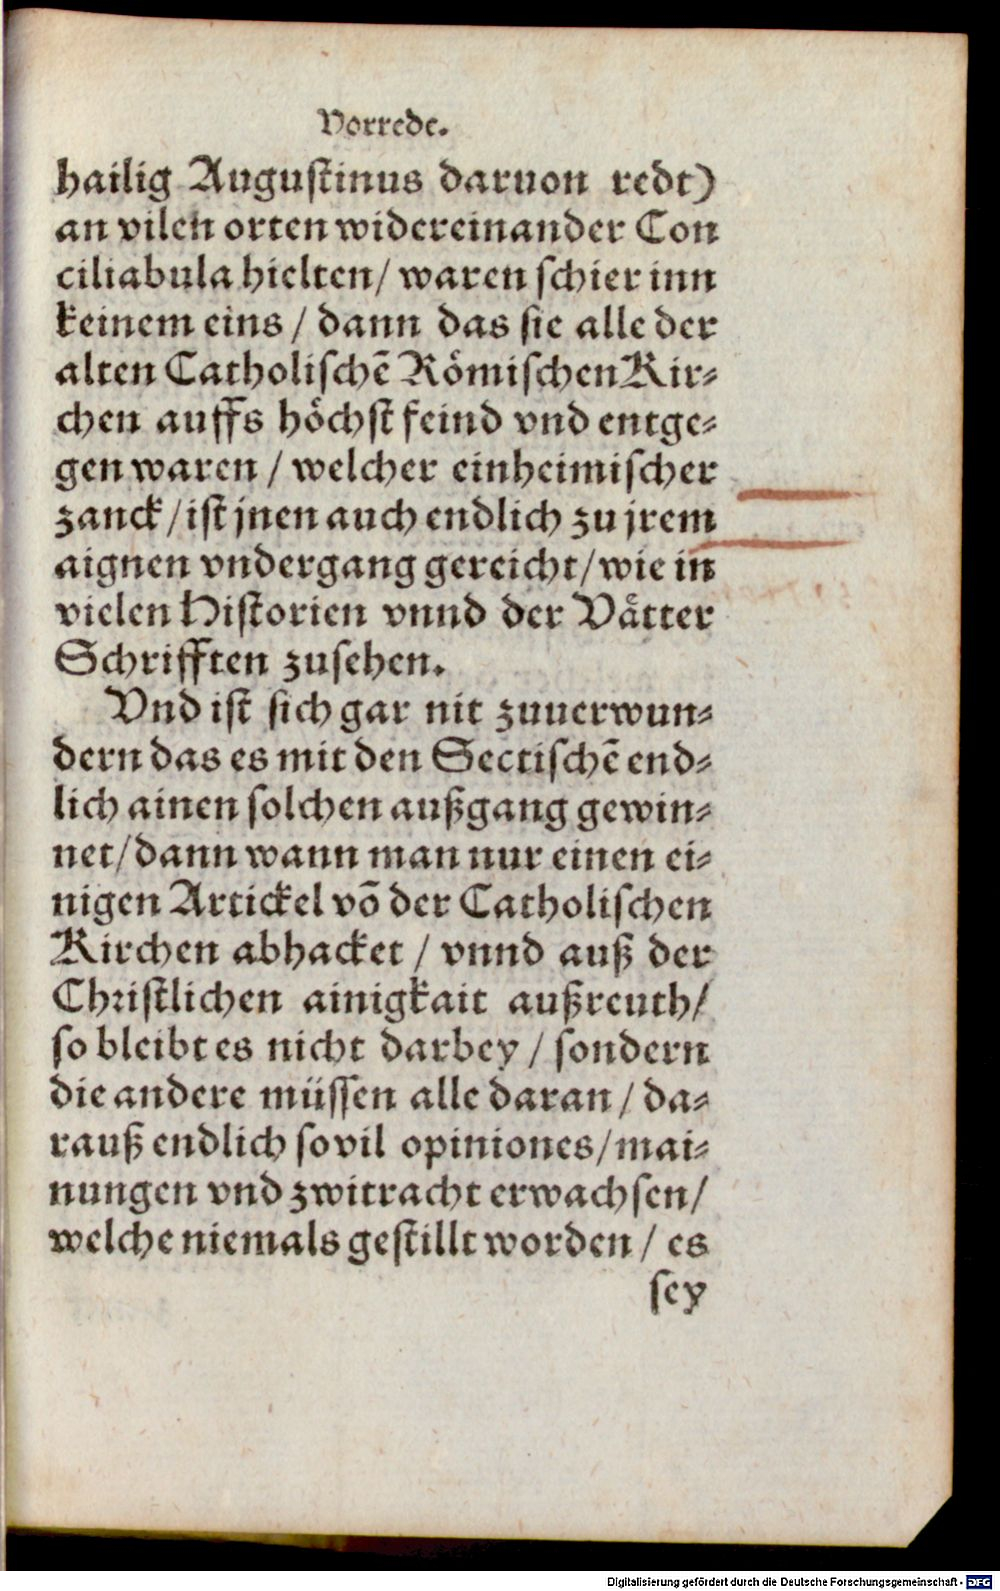 Vorrede.
hailig Augustinus daruon redt)
an vilen orten widereinander Con
ciliabula hielten/ waren schier inn
keinem eins / dann das sie alle der
alten Catholischē Römischen Kir⸗
chen auffs höchst feind vnd entge⸗
gen waren / welcher einheimischer
zanck/ist jnen auch endlich zu jrem
aignen vndergang gereicht/wie in
vielen Historien vnnd der Vätter
Schrifften zusehen.
Vnd ist sich gar nit zuuerwun⸗
dern das es mit den Sectischē end⸗
lich ainen solchen außgang gewin⸗
net/dann wann man nur einen ei⸗
nigen Artickel vō der Catholischen
Kirchen abhacket / vnnd auß der
Christlichen ainigkait außreuth/
so bleibt es nicht darbey / sondern
die andere müssen alle daran / da⸗
rauß endlich sovil opiniones/mai⸗
nungen vnd zwitracht erwachsen/
welche niemals gestillt worden / es
sey
Digitalisierung gefördert durch die Deutsche Forschungsgemeinschaft - DFG